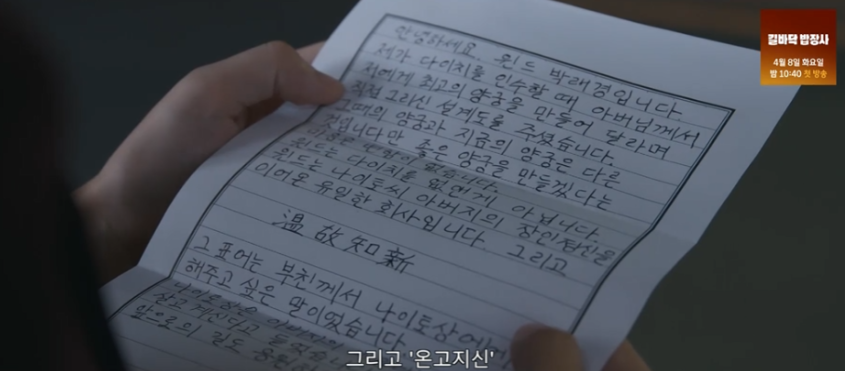 길바닥 밥장사
4월 8일 화요일
밤 10:40 첫 방송
안녕하세요. 윈드 박래경입니다
제가 다이치를 인수할 때 아버님께서
저에게 최고의 양궁을 만들어 달라며
직접 그리신 설계도를 주셨습니다.
그때의 양궁과 지금의 양궁은 다른
것입니다만 좋은 양궁을 만들겠다는
마음은 변함이 없습니다
윈드는 다이치를 없앤게 아닙니다
윈드는 나이토씨 아버지의 장인정신을
이어온 유일한 회사입니다 그리고
温故知新
그 표어는 부친께서 나이토상에게
해주고 싶은 말이었습니다
살고 계시다고
앞으로의 길도
그리고 '온고지신'